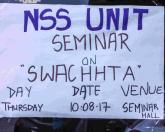 NSS UNIT
SEMINAR
ON
"SWACHHTA"
DAY DATE VENUE
THURSDAY 10:08·17 SEMINAR
HALL